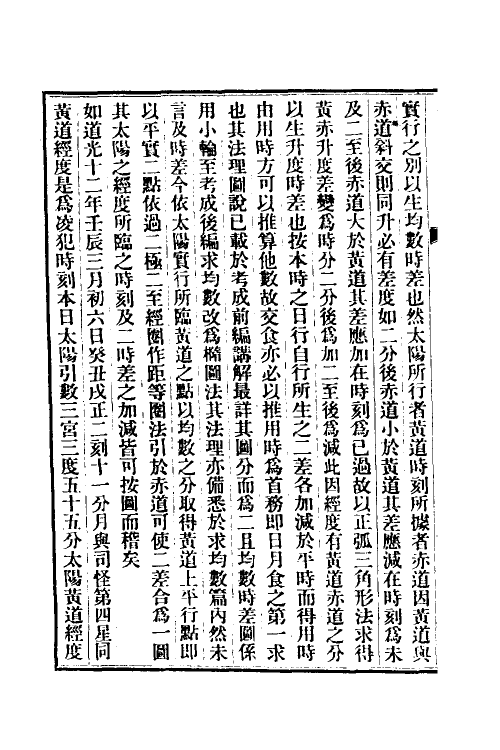 實行之別以生均數時差也然太陽所行者黃道時刻所據者赤道因黃道與
赤道斜交則同升必有差度如二分後赤道小於黃道其差應減在時刻爲未
及二至後赤道大於黃道其差應加在時刻爲已過故以正弧三角形法求得
黃赤升度差變爲時分二分後爲加二至後爲減此因經度有黃道赤道之分
以生升度時差也按本時之日行自行所生之二差各加減於平時而得用時
由用時方可以推算他數故交食亦必以推用時爲首務卽日月食之第一求
也其法理圖說已載於考成前編講解最詳其圖分而爲二且均數時差圖係
用小輪至考成後編求均數改爲橢圓法其法理亦備悉於求均數篇內然未
言及時差今依太陽實行所臨黃道之點以均數之分取得黃道上平行點卽
以平實二點依過二極二至經圈作距等圈法引於赤道可使二差合爲一圖
其太陽之經度所臨之時刻及二時差之加減皆可按圖而稽矣
如道光十二年壬辰三月初六日癸丑戌正二刻十一分月與司怪第四星同
黃道經度是爲凌犯時刻本日太陽引數三宮三度五十五分太陽黃道經度